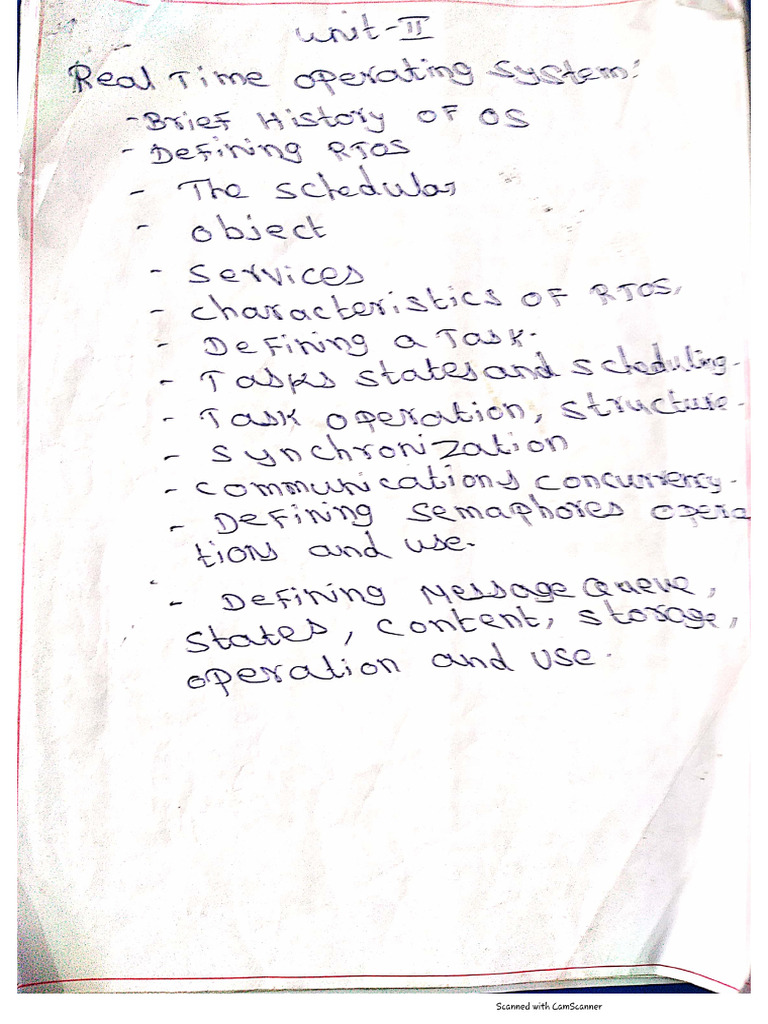 Unit-II
Real Time operating system:
-Brief History OF OS
- Defining RTOS
- The schedular
- object
- services
- characteristics OF RTOS.
- Defining a Task.
- Tasks states and scheduling.
- Task operation, structure.
- synchronization
- communications concurrency.
- Defining semaphores opera
tions and use.
- Defining Message Queue,
states, content, storage,
operation and use.
Scanned with CamScanner